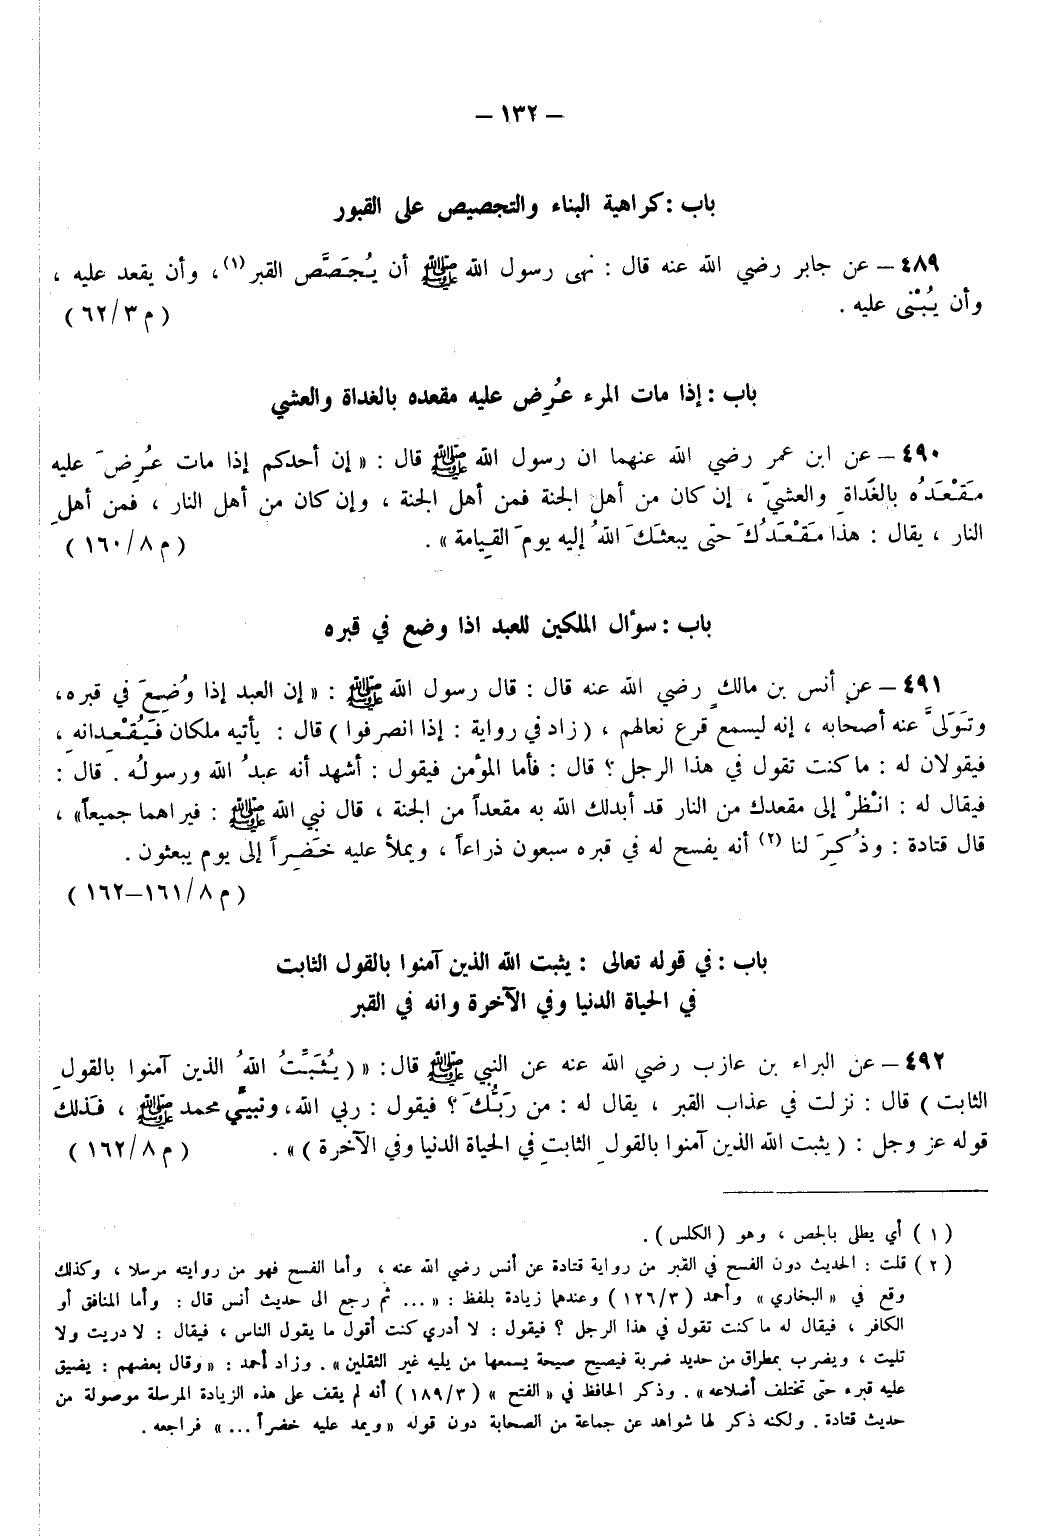 – ١٣٢ –
باب : كراهية البناء والتجصيص على القبور
٤٨٩ – عن جابر رضي الله عنه قال : نهى رسول الله ﷺ أن يُجَصَّص القبر (١) ، وأن يقعد عليه ،
وأن يُبْنى عليه . ( م ٣/٦٢ )
باب : إذا مات المرء عُرِض عليه مقعده بالغداة والعشي
٤٩٠ – عن ابن عمر رضي الله عنهما ان رسول الله ﷺ قال : « إن أحدكم إذا مات عُرِضَ عليه
مَقْعَدُه بالغَداةِ والعشيّ ، إن كان من أهل الجنة فمن أهل الجنة ، وإن كان من أهل النار ، فمن أهلِ
النار ، يقال : هذا مَقْعَدُكَ حتى يبعثكَ اللهُ إليه يومَ القيامة » . ( م ٨/١٦٠ )
باب : سؤال الملكين للعبد اذا وضع في قبره
٤٩١ – عن أنس بن مالكٍ رضي الله عنه قال : قال رسول الله ﷺ : « إن العبد إذا وُضِعَ في قبره ،
وتَوَلىَّ عنه أصحابه ، إنه ليسمع قرع نعالهم ، ( زاد في رواية : إذا انصرفوا ) قال : يأتيه ملكان فَيُقْعِدانهِ ،
فيقولان له : ما كنت تقول في هذا الرجل ؟ قال : فأما المؤمن فيقول : أشهد أنه عبدُ الله ورسولُه . قال :
فيقال له : انْظُرْ إلى مقعدك من النار قد أبدلك الله به مقعداً من الجنة ، قال نبي الله ﷺ : فيراهما جميعاً» ،
قال قتادة : وذُكِرَ لنا (٢) أنه يفسح له في قبره سبعون ذراعاً ، ويملأ عليه خَضِراً إلى يوم يبعثون .
( م ٨/١٦١–١٦٢ )
باب : في قوله تعالى : يثبت الله الذين آمنوا بالقول الثابت
في الحياة الدنيا وفي الآخرة وانه في القبر
٤٩٢ – عن البراء بن عازب رضي الله عنه عن النبي ﷺ قال : « ( يُثَبِّتُ اللهُ الذين آمنوا بالقولِ
الثابت ) قال : نزلت في عذاب القبر ، يقال له : من رَبُّكَ ؟ فيقول : ربي الله ، ونبيِّي محمد ﷺ ، فَذلك
قوله عز وجل : ( يثبت الله الذين آمنوا بالقولِ الثابتِ في الحياة الدنيا وفي الآخرة ) » . ( م ٨/١٦٢ )
( ١ ) أي يطلى بالجص ، وهو ( الكلس ) .
( ٢ ) قلت : الحديث دون الفسح في القبر من رواية قتادة عن أنس رضي الله عنه ، وأما الفسح فهو من روايته مرسلا ، وكذلك
وقع في « البخاري » وأحمد ( ٣/١٢٦ ) وعندهما زيادة بلفظ : « ... ثم رجع الى حديث أنس قال : وأما المنافق أو
الكافر ، فيقال له ما كنت تقول في هذا الرجل ؟ فيقول : لا أدري كنت أقول ما يقول الناس ، فيقال : لا دريت ولا
تليت ، ويضرب بمطراق من حديد ضربة فيصيح صيحة يسمعها من يليه غير الثقلين » . وزاد أحمد : « وقال بعضهم : يضيق
عليه قبره حتى تختلف أضلاعه » . وذكر الحافظ في « الفتح » ( ٣/١٨٩ ) أنه لم يقف على هذه الزيادة المرسلة موصولة من
حديث قتادة . ولكنه ذكر لها شواهد عن جماعة من الصحابة دون قوله « ويمد عليه خضراً ... » فراجعه .